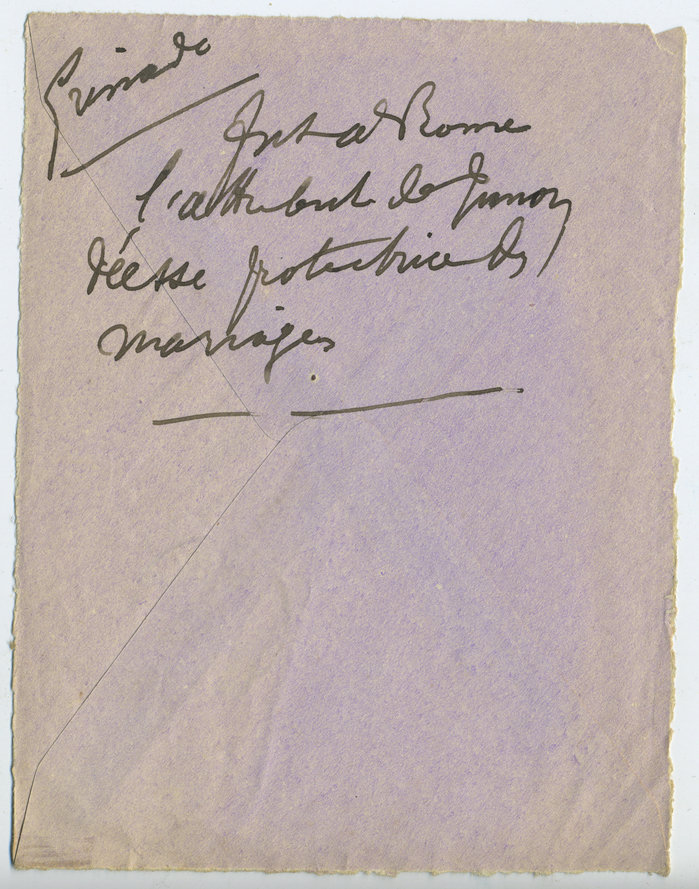 Grenade
fut à Rome
l'attribut de Junon,
déesse protectrice des
mariages.